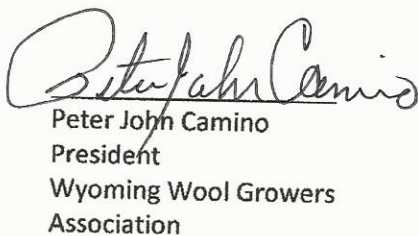 Peter John Camino
Peter John Camino
President
Wyoming Wool Growers
Association